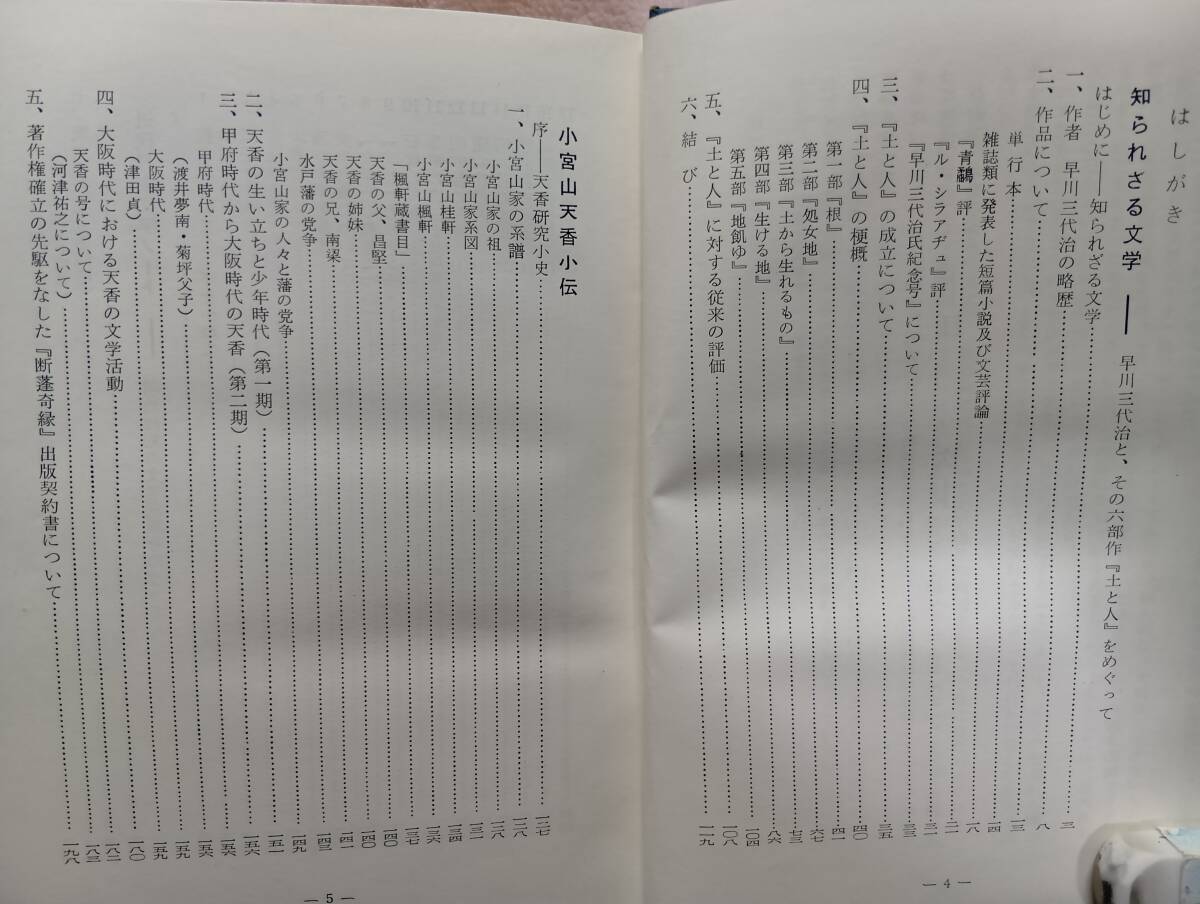 はしがき
知られざる文学 ── 早川三代治と、その六部作『土と人』をめぐって
はじめに──知られざる文学
一、作者 早川三代治の略歴 三
二、作品について 八
単行本 一三
雑誌類に発表した短篇小説及び文芸評論 一四
『青鷭』評 一八
『ル・シラアヂュ』評 三一
『早川三代治氏紀念号』について 三三
三、『土と人』の成立について 三五
四、『土と人』の梗概 四〇
第一部『根』 四一
第二部『処女地』 六七
第三部『土から生れるもの』 七三
第四部『生ける地』 八六
第五部『地飢ゆ』 一〇四
五、『土と人』に対する従来の評価 一〇八
六、結び 一一九
― 4 ―
小宮山天香小伝
序──天香研究小史 一二七
一、小宮山家の系譜 一二八
小宮山家の祖 一二八
小宮山家系図 一三一
小宮山桂軒 一三四
小宮山楓軒 一三六
「楓軒蔵書目」 一三七
天香の父、昌堅 一四〇
天香の姉妹 一四〇
天香の兄、南梁 一四一
水戸藩の党争 一四三
小宮山家の人々と藩の党争 一四九
二、天香の生い立ちと少年時代(第一期) 一五一
三、甲府時代から大阪時代の天香(第二期) 一五六
甲府時代 一五六
(渡井夢南・菊坪父子) 一五六
大阪時代 一五九
(津田貞) 一五九
四、大阪時代における天香の文学活動 一八〇
天香の号について 一八二
(河津祐之について) 一八三
五、著作権確立の先駆をなした『断蓬奇縁』出版契約書について 一九八
― 5 ―